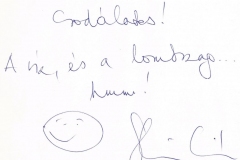 Csodálatos!
A íz, és a lombszag...
hmm!